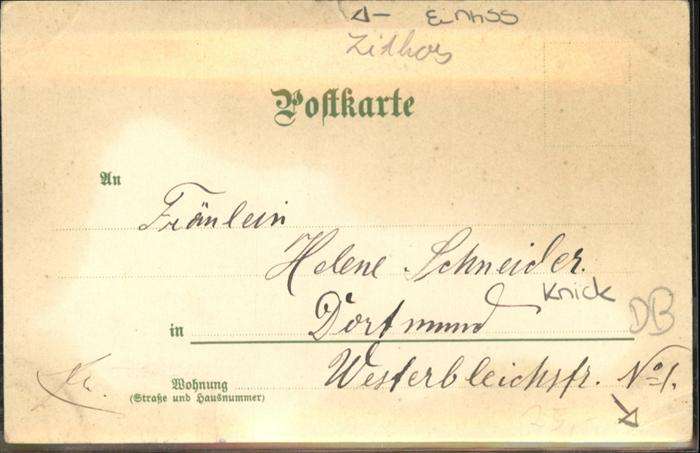 Einriss
Postkarte
An
Fräulein
Helene Schneider.
Knick
in Dortmund
DB
Wohnung Westerbleichstr. No 1.
(Straße und Hausnummer)